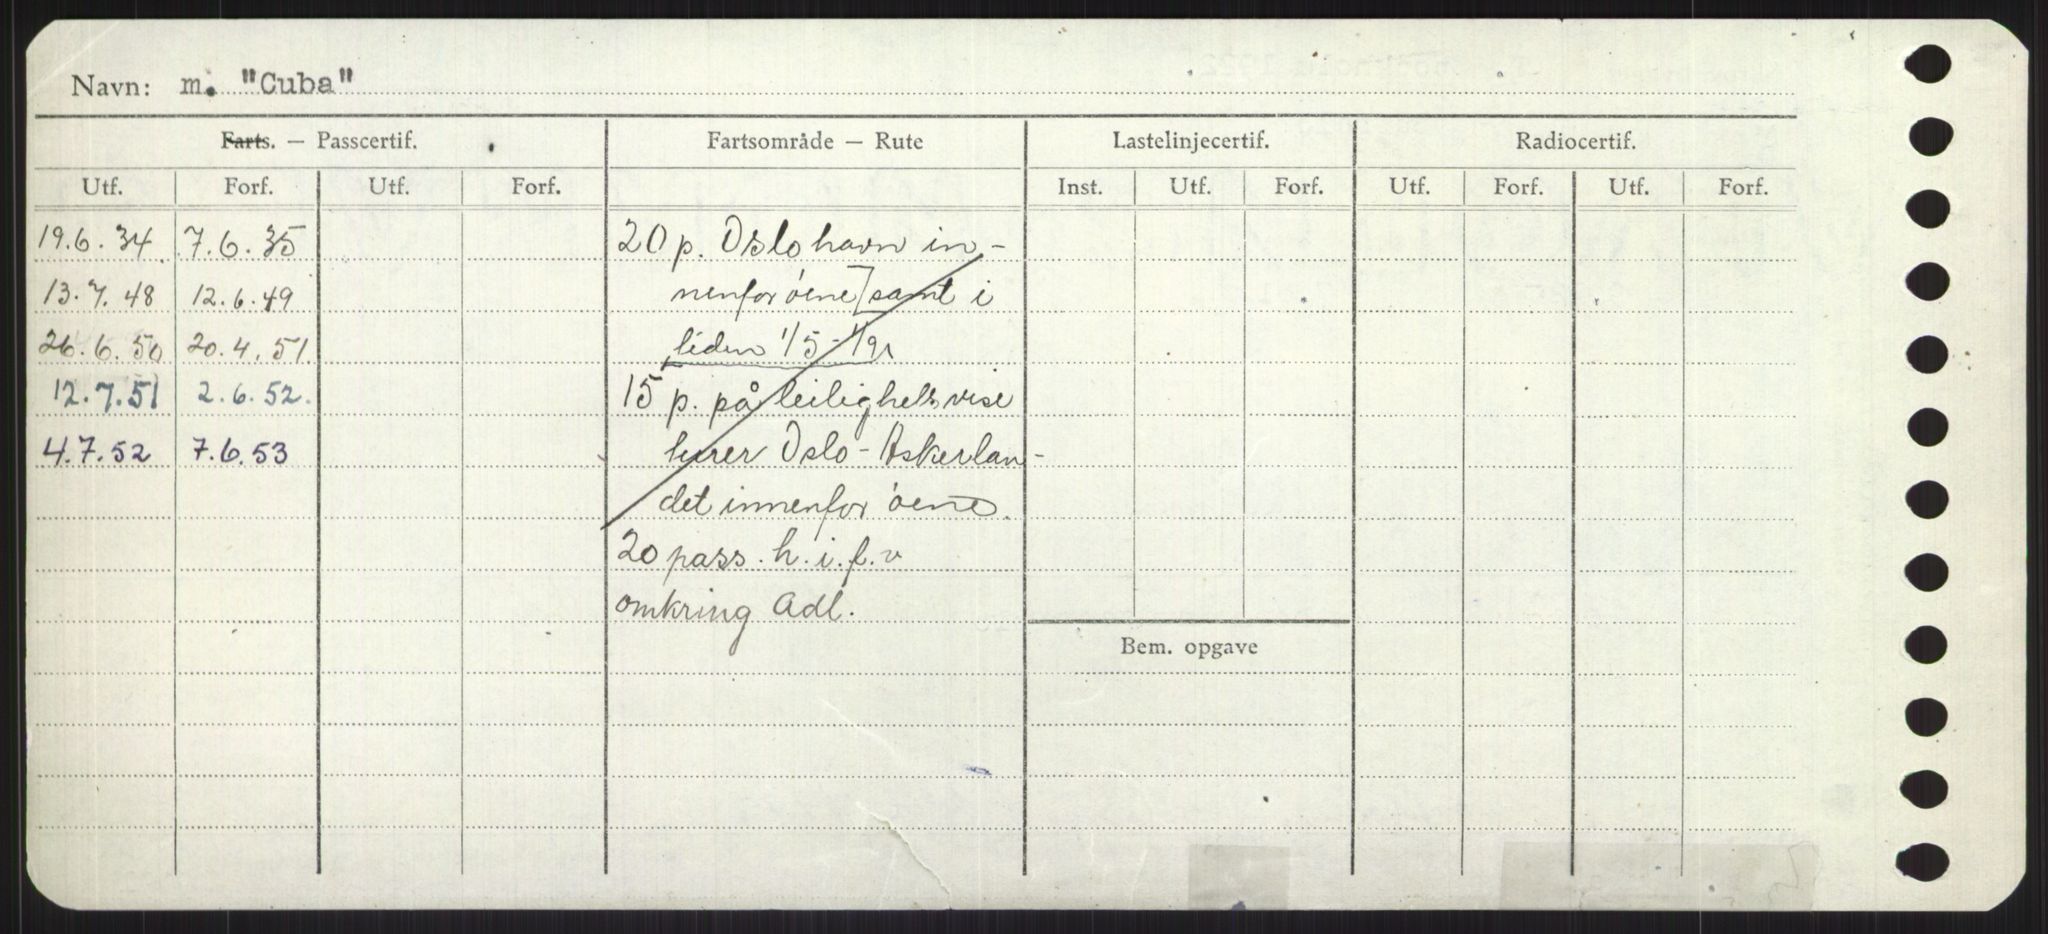 Navn: m. "Cuba"
Farts. — Passcertif. Fartsområde — Rute Lastelinjecertif. Radiocertif.
Utf. Forf. Utf. Forf. Inst. Utf. Forf. Utf. Forf. Utf. Forf.
19.6.34 7.6.35 20 p. Oslo havn in-
13.7.48 12.6.49 nenfor øene samt i
26.6.50 20.4.51. tiden 1/5 - 1/9,
12.7.51 2.6.52. 15 p. på leilighetsvise
4.7.52 7.6.53 turer Oslo - Askerlan-
det innenfor øene.
20 pass. h.i.f.v
omkring Adl.
Bem. opgave